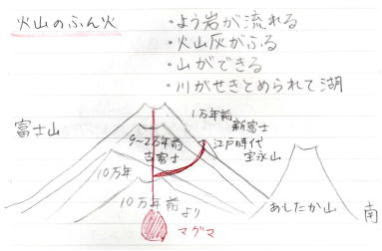 火山のふん火
・よう岩が流れる
・火山灰がふる
・山ができる
・川がせきとめられて湖
富士山
1万年前
新富士
江戸時代
宝永山
古富士
10万年
10万年前より
マグマ
あしたか山
南